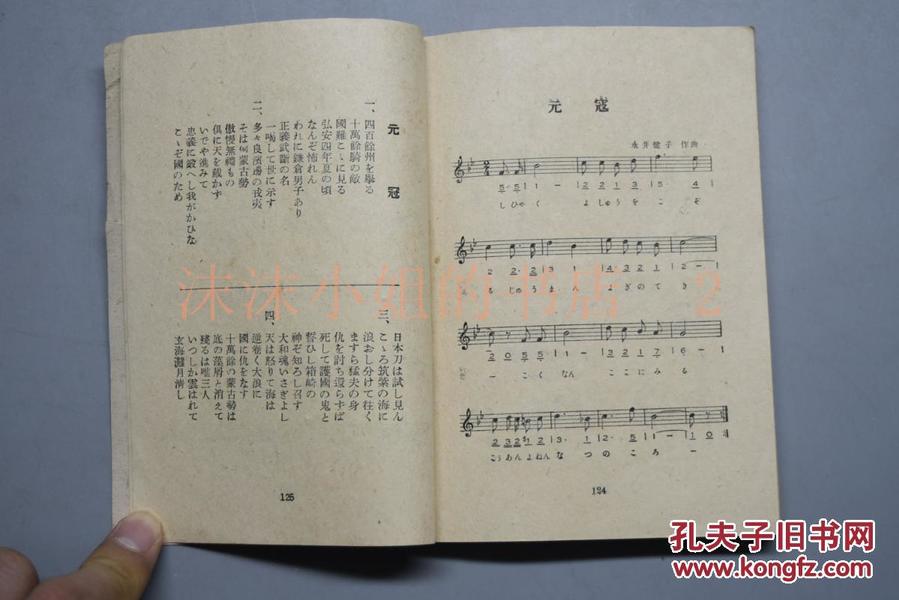 元寇
永井建子 作曲
5·5 1 - 2 2 1 3 5· 4
しひゃく よしゅうを こぞ
2 2·2 3 1 4 3 2 1 2 -
る じゅうまん よぎのてき
2 0 5 5 3 - 2 2 3 1 7 6 -
ー こくなん ここにみる
3· 1 2· 5 1 - - 1 0
こうあんよねん なつのころ ー
124
元寇
一、四百餘州を擧る
十萬餘騎の敵
國難こゝに見る
弘安四年夏の頃
なんぞ怖れん
われに鎌倉男子あり
正義武斷の名
一喝して世に示す
二、多々良濱邊の戎夷
そは何蒙古勢
傲慢無禮もの
倶に天を戴かず
いでや進みて
忠義に鍛へし我がかひな
こゝぞ國のため
三、日本刀は試し見ん
こゝろ筑紫の海に
浪おし分けて往く
ますら猛夫の身
仇を討ち還らずば
死して護國の鬼と
誓ひし箱崎の
神ぞ知ろし召す
大和魂いさぎよし
四、天は怒りて海は
逆巻く大浪に
國に仇をなす
十萬餘の蒙古勢は
底の藻屑と消えて
殘るは唯三人
いつしか雲はれて
玄海灘月淸し
125
沫沫小姐的书店 2
孔夫子旧书网
www.kongfz.com